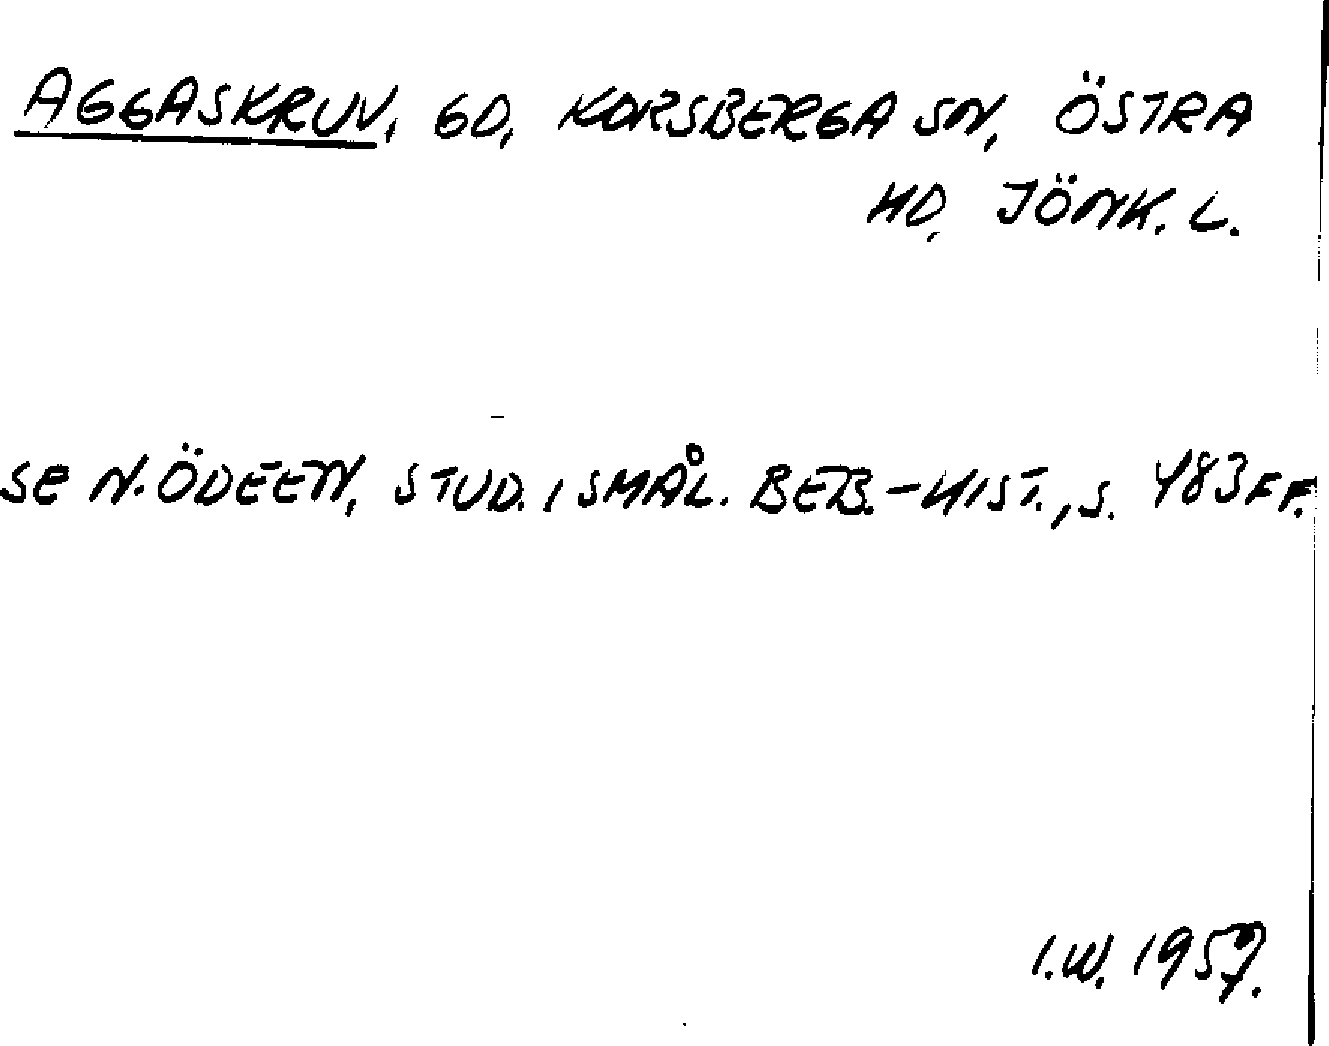 AGGASKRUV, GD, KORSBERGA SN, ÖSTRA
HD, JÖNK. L.
SE N. ÖDEEN, STUD. I SMÅL. BEB.-HIST., S. 483 FF.
I.W. 1957.